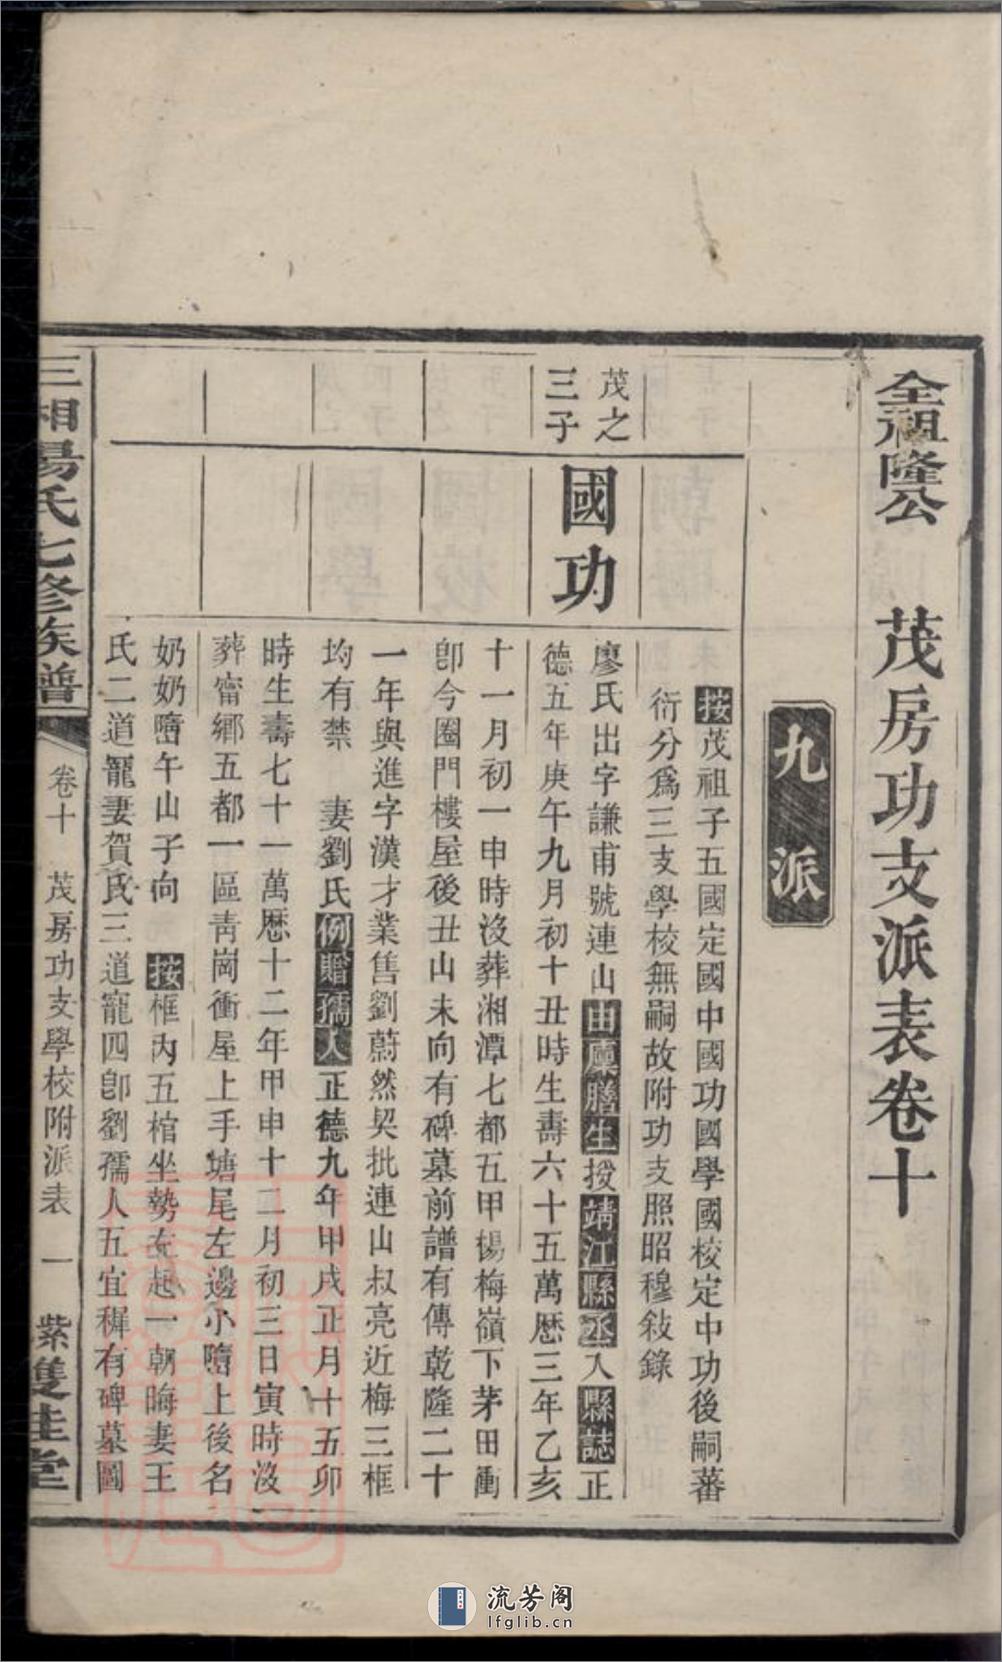 全祖隆公　茂房功支派表卷十
九派
按茂祖子五國定國中國功國學國校定中功後嗣蕃
衍分爲三支學校無嗣故附功支照昭穆敍錄
茂之
三子
國功
廖氏出字謙甫號連山由廩膳生授靖江縣丞入縣誌正
德五年庚午九月初十丑時生壽六十五萬歷三年乙亥
十一月初一申時沒葬湘潭七都五甲楊梅嶺下茅田衝
卽今圈門樓屋後丑山未向有碑墓前譜有傳乾隆二十
一年與進字漢才業售劉蔚然契批連山叔亮近梅三框
均有禁　妻劉氏例贈孺人正德九年甲戌正月十五卯
時生壽七十一萬歷十二年甲申十二月初三日寅時沒
葬甯鄉五都一區靑崗衝屋上手塘尾左邊小墮上後名
奶奶墮午山子向　按框內五棺坐勢左起一朝晦妻王
氏二道寵妻賀氏三道寵四卽劉孺人五宜穉有碑墓圖
三湘楊氏七修族譜
卷十　茂房功支學校附派表　一　紫雙桂堂
流芳阁
lfglib.cn